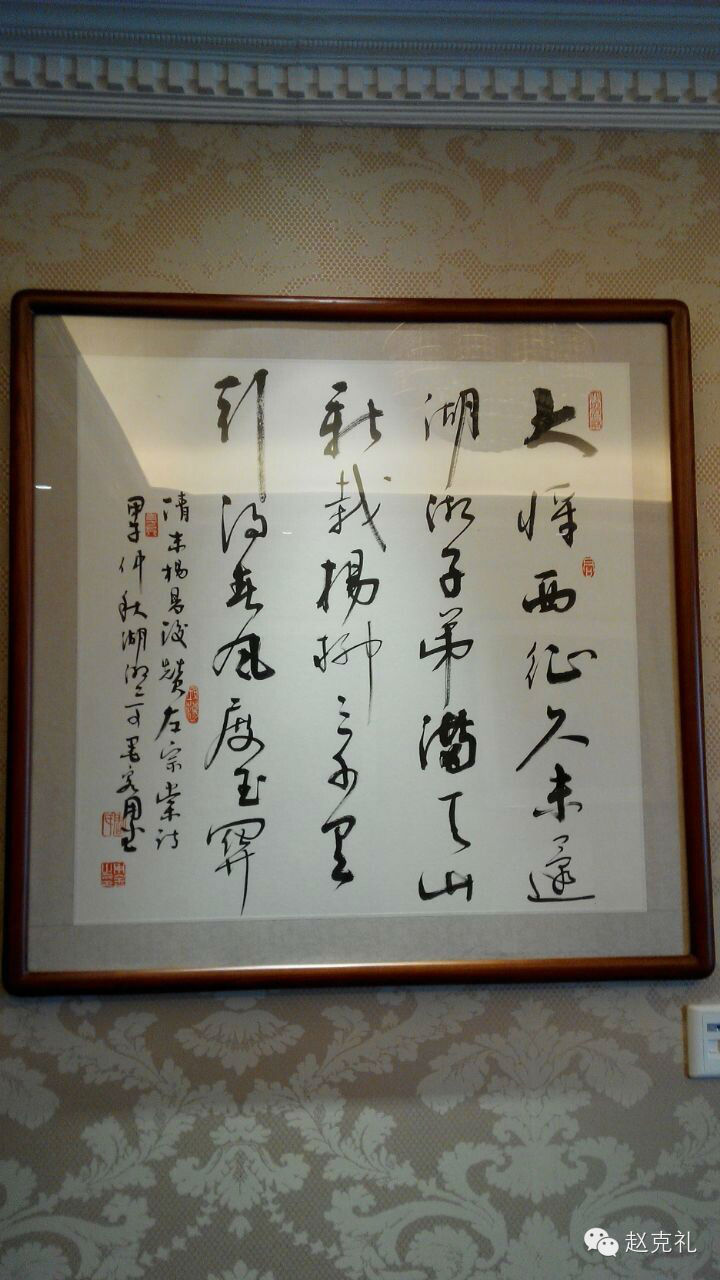 大将西征久未還
湖湘子弟满天山
新栽楊柳三千里
引得春风度玉関
清末楊昌浚贊左宗棠诗
甲午仲秋湖湘
赵克礼